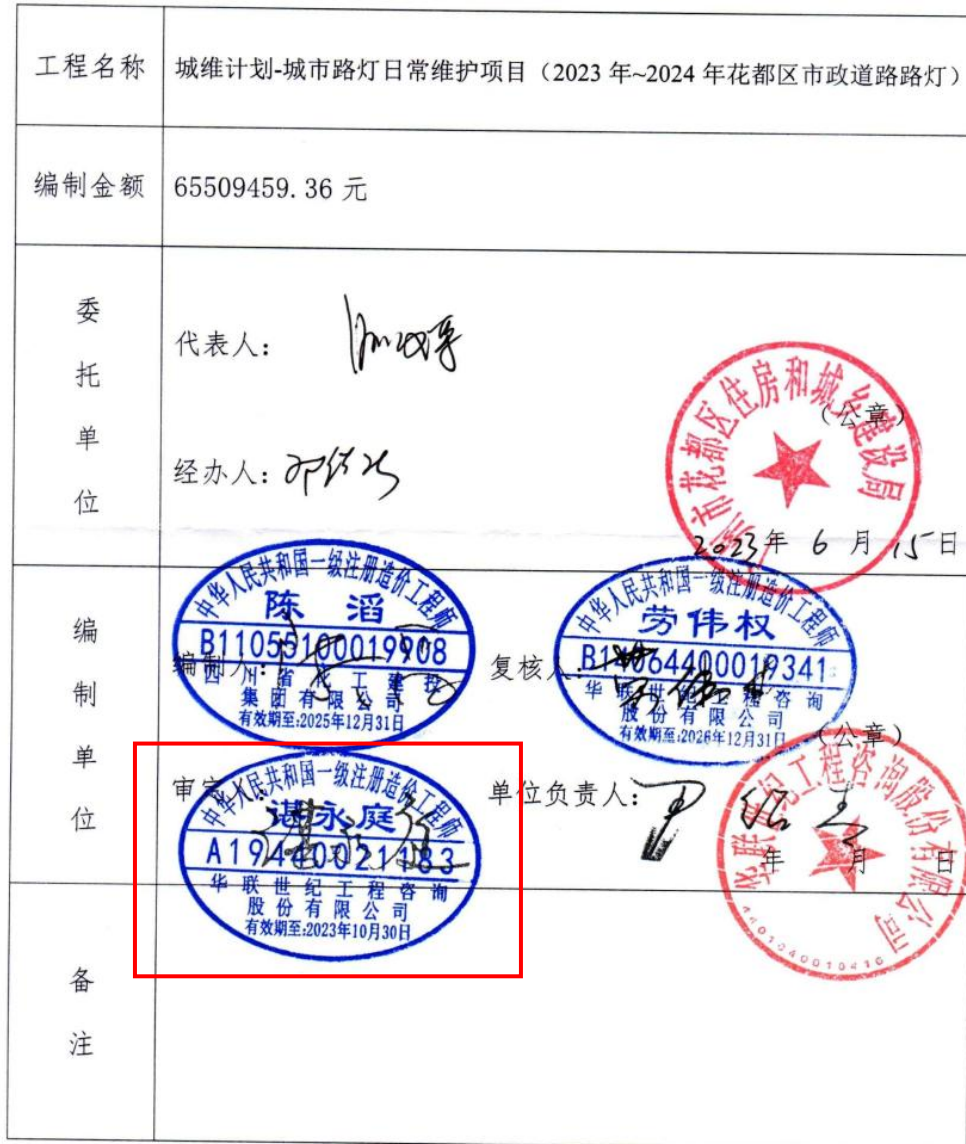 工程名称
城维计划-城市路灯日常维护项目（2023 年~2024 年花都区市政道路路灯）
编制金额
65509459.36 元
委托单位
代表人：
经办人：
市花都区住房和城乡建设局
（公章）
2023年 6 月 15日
编制单位
中华人民共和国一级注册造价工程师
陈 滔
B11055100019908
编制人：
四川省化工建投
集团有限公司
有效期至:2025年12月31日
复核人：
中华人民共和国一级注册造价工程师
劳伟权
B14064400019341
华联世纪工程咨询
股份有限公司
有效期至:2026年12月31日
审定人：
中华人民共和国一级注册造价工程师
谌永庭
A19440021183
华联世纪工程咨询
股份有限公司
有效期至:2023年10月30日
单位负责人：
（公章）
年 月 日
华联世纪工程咨询股份有限公司
4401040010410
备注